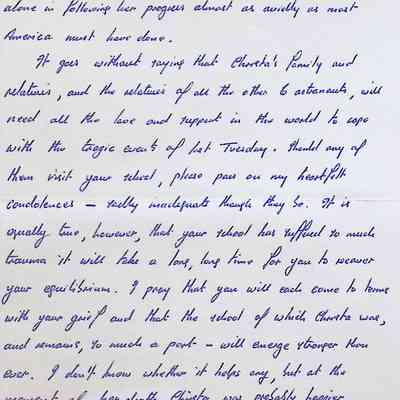 alone in following her progress almost as avidly as most
America must have done.
It goes without saying that Christa's family and
relatives, and the relatives of all the other 6 astronauts, will
need all the love and support in the world to cope
with the tragic events of last Tuesday. Should any of
them visit your school, please pass on my heartfelt
condolences – sadly inadequate though they be. It is
equally true, however, that your school has suffered so much
trauma it will take a long, long time for you to recover
your equilibrium. I pray that you will each come to terms
with your grief and that the school of which Christa was,
and remains, so much a part – will emerge stronger than
ever. I don't know whether it helps any, but at the
moment of her death Christa was probably happier